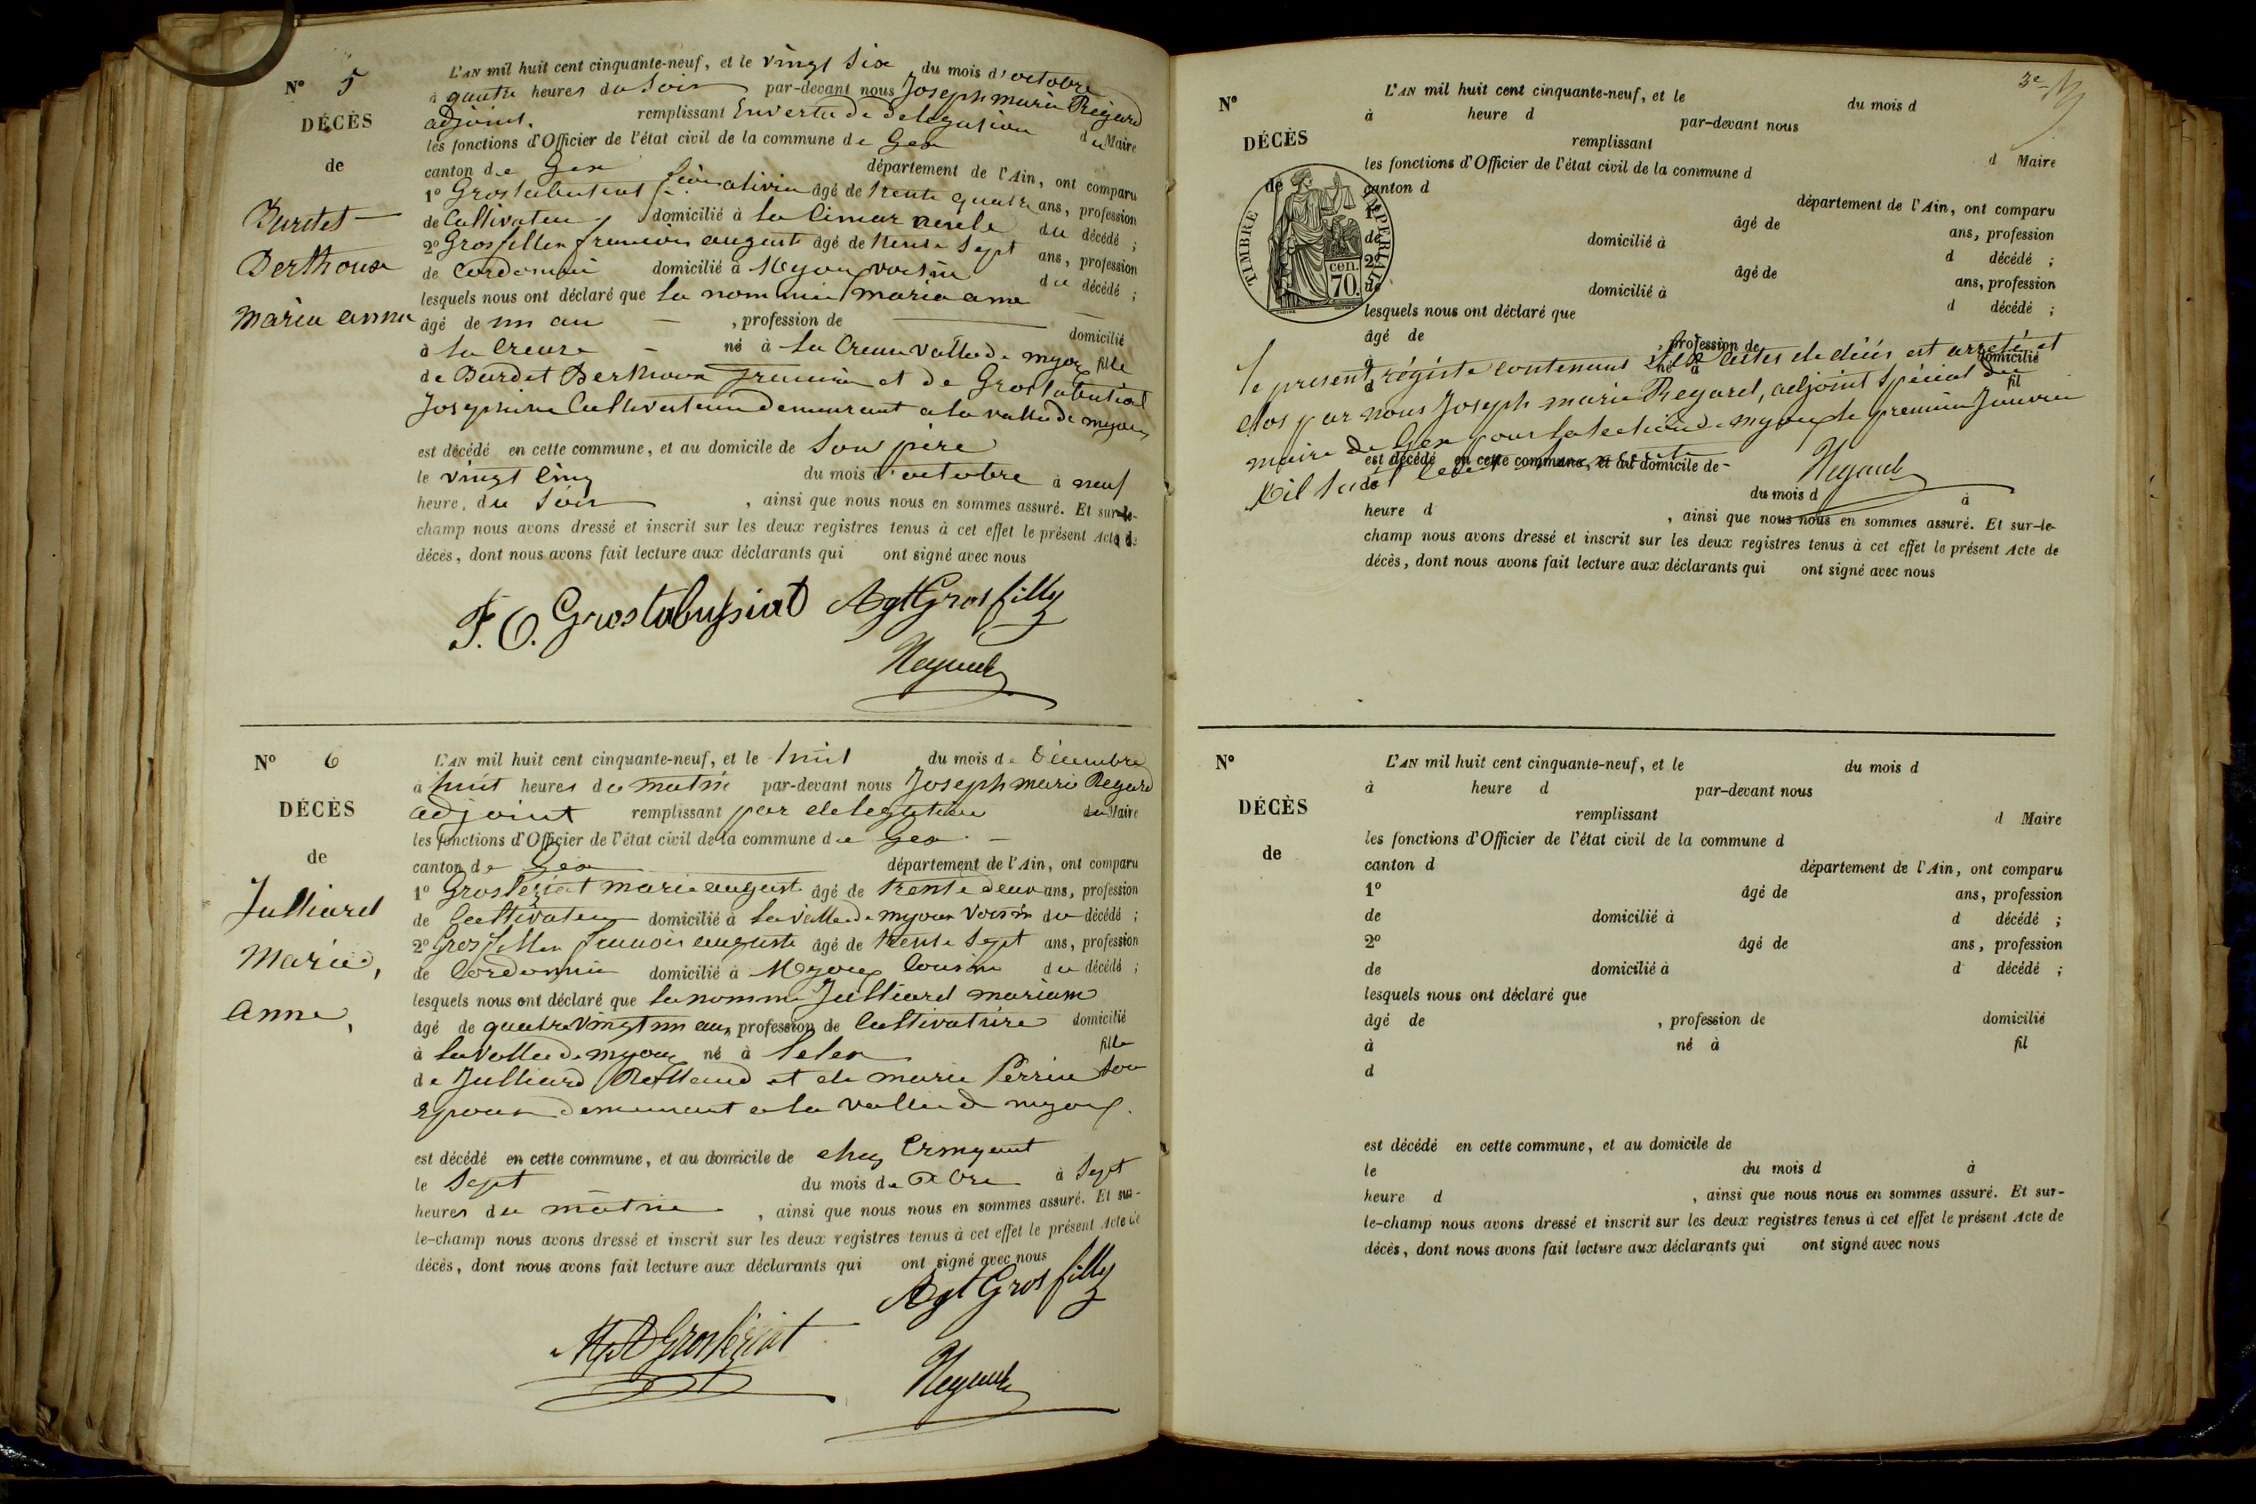 N° 5
DÉCÈS
de
Burdet
Berthoux
Maria anna
L'AN mil huit cent cinquante-neuf, et le vingt Six du mois d'octobre
à quatre heures du Soir par-devant nous Joseph marie Regard
adjoint remplissant Envertu de delegasion du Maire
les fonctions d'Officier de l'état civil de la commune de Gex
canton de Gex département de l'Ain, ont comparu
1° Grostabussiat âgé de trente quatre ans, profession
de Cultivateur domicilié à la du décédé ;
2° Grosfiller francois auguste âgé de trente Sept ans, profession
de Cordonnié domicilié à Myoux voisin du décédé ;
lesquels nous ont déclaré que la nommée maria ana
âgé de un an — , profession de — domicilié
à la Creuse — né à la Creuse Vallée de myoux fille
de Burdet Berthoux et de Grostabusiat
Josephine demeurant a la vallée de myoux
est décédé en cette commune, et au domicile de Son père
le vingt Cinq du mois d'octobre à neuf
heure, du Soir , ainsi que nous nous en sommes assuré. Et sur-le-
champ nous avons dressé et inscrit sur les deux registres tenus à cet effet le présent Acte de
décès, dont nous avons fait lecture aux déclarants qui ont signé avec nous
F. O. Grostabussiat Agt Gros filley
Regard
N° 6
DÉCÈS
de
Julliard
Marie,
Anne,
L'AN mil huit cent cinquante-neuf, et le huit du mois de Décembre
à huit heures du matin par-devant nous Joseph marie Regard
adjoint remplissant par delegation du Maire
les fonctions d'Officier de l'état civil de la commune de Gex —
canton de Gex département de l'Ain, ont comparu
1° Grosléziat marie auguste âgé de trente deux ans, profession
de Cultivateur domicilié à la vallée de myoux Voisin du décédé ;
2° Grosfiller francois auguste âgé de trente Sept ans, profession
de Cordonnié domicilié à Myoux Cousin du décédé ;
lesquels nous ont déclaré que la nommé Julliard mariane
âgé de quatre Vingt un ans, profession de Cultivatrire domicilié
à la Vallée de myoux né à Lelex fille
de Julliard Rolland et de marie Perrin Son
epouse demeurant a la vallée de myoux.
est décédé en cette commune, et au domicile de chez
le Sept du mois de Xbre à Sept
heures du matin , ainsi que nous nous en sommes assuré. Et sur-
le-champ nous avons dressé et inscrit sur les deux registres tenus à cet effet le présent Acte de
décès, dont nous avons fait lecture aux déclarants qui ont signé avec nous
Agt Gros filley
Grosléziat
Regard
3e
N°
DÉCÈS
de
TIMBRE IMPÉRIAL
70 cen.
L'AN mil huit cent cinquante-neuf, et le du mois d
à heure d par-devant nous
remplissant d Maire
les fonctions d'Officier de l'état civil de la commune d
canton d département de l'Ain, ont comparu
1° âgé de ans, profession
de domicilié à d décédé ;
2° âgé de ans, profession
de domicilié à d décédé ;
lesquels nous ont déclaré que
âgé de , profession de domicilié
à né à fil
d
le present régiste contenant Six actes de décés est arreté et
clos par nous Joseph marie Regard, adjoint Spécial du
maire de Gex pour la section de myoux le premier Janvier
Mil huit cent soixante
Regard
est décédé en cette commune, et au domicile de
le du mois d à
heure d , ainsi que nous nous en sommes assuré. Et sur-le-
champ nous avons dressé et inscrit sur les deux registres tenus à cet effet le présent Acte de
décès, dont nous avons fait lecture aux déclarants qui ont signé avec nous
N°
DÉCÈS
de
L'AN mil huit cent cinquante-neuf, et le du mois d
à heure d par-devant nous
remplissant d Maire
les fonctions d'Officier de l'état civil de la commune d
canton d département de l'Ain, ont comparu
1° âgé de ans, profession
de domicilié à d décédé ;
2° âgé de ans, profession
de domicilié à d décédé ;
lesquels nous ont déclaré que
âgé de , profession de domicilié
à né à fil
d
est décédé en cette commune, et au domicile de
le du mois d à
heure d , ainsi que nous nous en sommes assuré. Et sur-
le-champ nous avons dressé et inscrit sur les deux registres tenus à cet effet le présent Acte de
décès, dont nous avons fait lecture aux déclarants qui ont signé avec nous